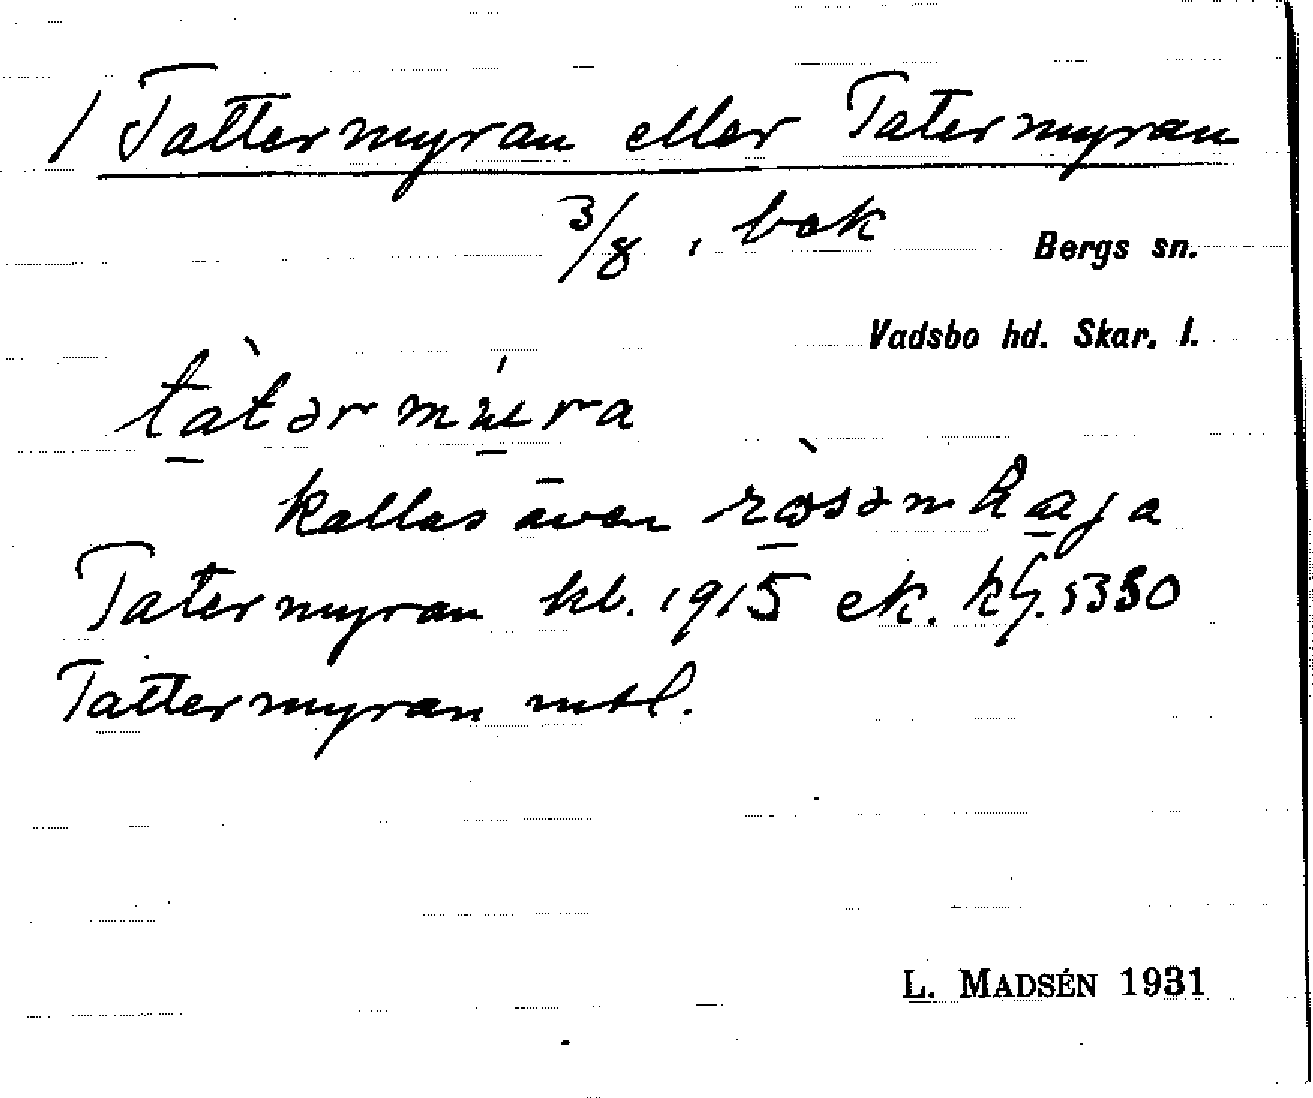 / Tattermyran eller Tatermyran
3/8, bok
Bergs sn.
Vadsbo hd. Skar. l.
kallas även
Tatermyran kb. 1915 ek. kf. 5350
Tattermyran mtl.
L. MADSÉN 1931